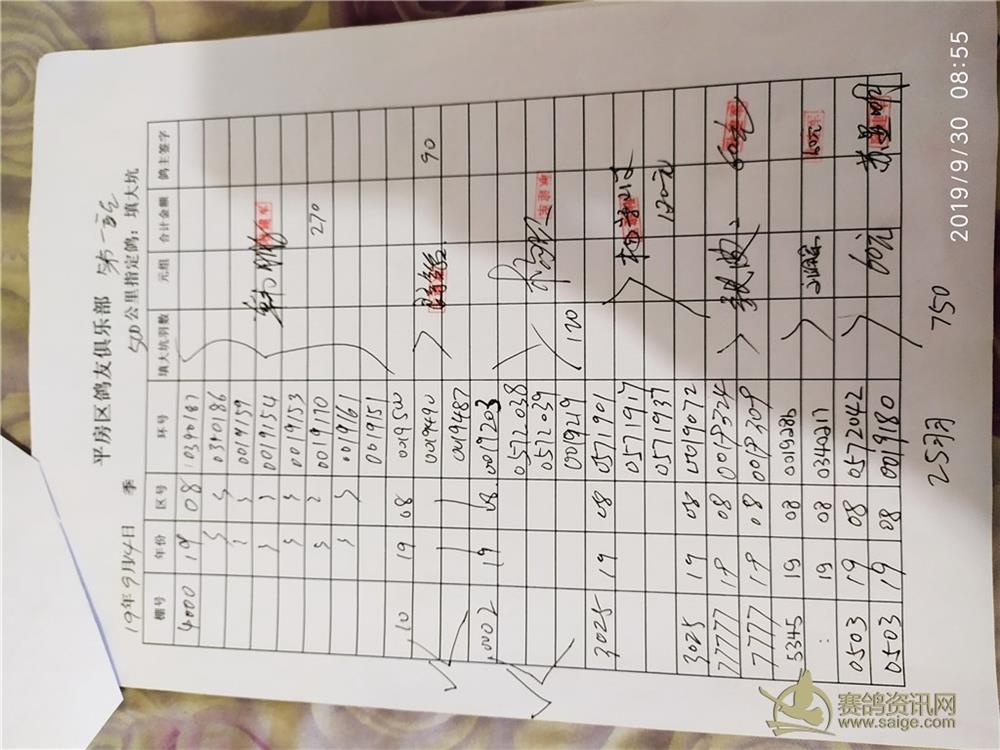 平房区鸽友俱乐部 第一 
19年9月14日 季 500公里指定鸽：填大坑
棚号 年份 区号 环号 填大坑羽数 元组 合计金额 鸽主签字
4000 19 08 0340187
0340186
0019159
0019154
0019153 270
0019170
0019161
0019151
10 19 08 0019500
0019490 90
0019487
0002 19 08 0019203
0572038
0572039
0019219 120
3025 19 08 0571901
0571917
0571937 120元
3025 19 08 0019072
77777 18 08
7777 18 08 60元
5345 19 08 0019288
19 08 0340217 60元
0503 19 08 0572042
0503 19 08 0019180 60元
25羽 750
2019/9/30 08:55
赛鸽资讯网
www.saige.com